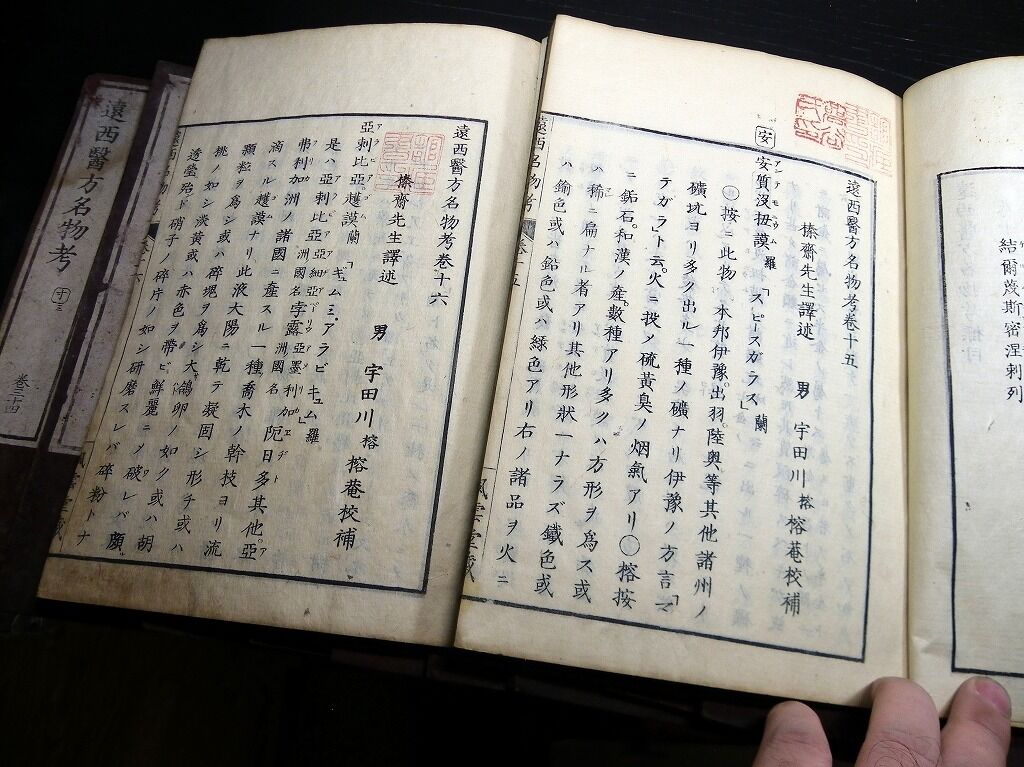 遠西醫方名物考卷十五
榛齋先生譯述
男 宇田川榕 榕菴校補
安
安質沒扭謨 羅 「スピースガラス」 蘭
按ニ此物 本邦伊豫出羽陸奥等其他諸州ノ
礦坑ヨリ多ク出ル一種ノ礦ナリ伊豫ノ方言「マ
テガラ」ト云火ニ投ノ硫黃臭ノ烟氣アリ○榕按
ニ鈲石和漢ノ産數種アリ多クハ方形ヲ爲ス或
ハ稀ニ扁ナル者アリ其他形狀一ナラズ鐵色或
ハ鍮色或ハ鉛色或ハ綠色アリ右ノ諸品ヲ火ニ
遠西名物考
遠西醫方名物考卷十六
榛齋先生譯述
男 宇田川榕 榕菴校補
亞剌比亞越謨 蘭 「ギュムミ、アラビキュム 羅
是ハ亞剌比亞 亞細亞洲國名 孛露 亞墨利加洲國名 阨日多其他亞
弗利加洲ノ諸國ニ産スル一種喬木ノ幹枝ヨリ流
滴スル越謨ナリ此液大陽ニ乾テ凝固シ形チ或ハ
顆粒ヲ爲シ或ハ碎塊ヲ爲シ大サ鴿卵ノ如ク或ハ胡
桃ノ如シ淡黃或ハ赤色ヲ帶ビ鮮麗ニノ破レバ頗
透瑩殆ド硝子ノ碎片ノ如シ研磨スレバ碎粉トナ
遠西名物考
遠西醫方名物考
結爾蔑斯密涅剌列